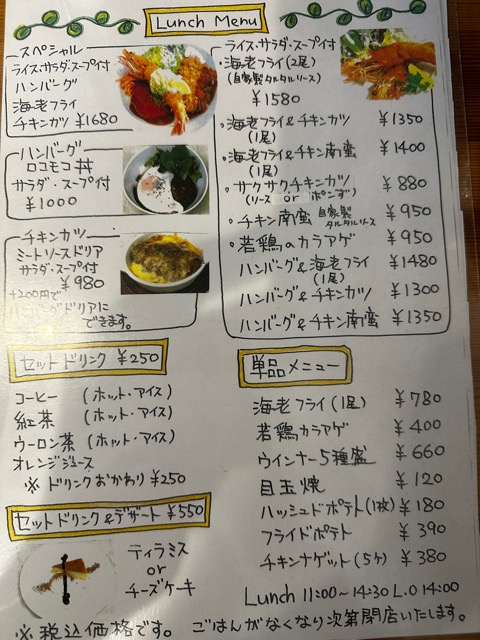 Lunch Menu
スペシャル
ライス・サラダ・スープ付
ハンバーグ
海老フライ
チキンカツ ¥1680
ハンバーグ
ロコモコ丼
サラダ・スープ付
¥1000
チキンカツ
ミートソースドリア
サラダ・スープ付
¥980
+200円で
ドリアに
できます。
ライス・サラダ・スープ付
・海老フライ(2尾)
(自家製タルタルソース)
¥1580
・海老フライ&チキンカツ ¥1350
(1尾)
・海老フライ&チキン南蛮 ¥1400
(1尾)
・サクサクチキンカツ ¥880
(ソース or ポンず)
・チキン南蛮 自家製タルタルソース ¥950
・若鶏のカラアゲ ¥950
ハンバーグ&海老フライ ¥1480
(1尾)
ハンバーグ&チキンカツ ¥1300
ハンバーグ&チキン南蛮 ¥1350
セットドリンク ¥250
コーヒー (ホット・アイス)
紅茶 (ホット・アイス)
ウーロン茶 (ホット・アイス)
オレンジジュース
※ ドリンクおかわり ¥250
セットドリンク&デザート ¥550
ティラミス
or
チーズケーキ
単品メニュー
海老フライ(1尾) ¥780
若鶏カラアゲ ¥400
ウインナー5種盛 ¥660
目玉焼 ¥120
ハッシュドポテト(1枚) ¥180
フライドポテト ¥390
チキンナゲット(5ヶ) ¥380
Lunch 11:00~14:30 L.O 14:00
※ 税込価格です。 ごはんがなくなり次第閉店いたします。